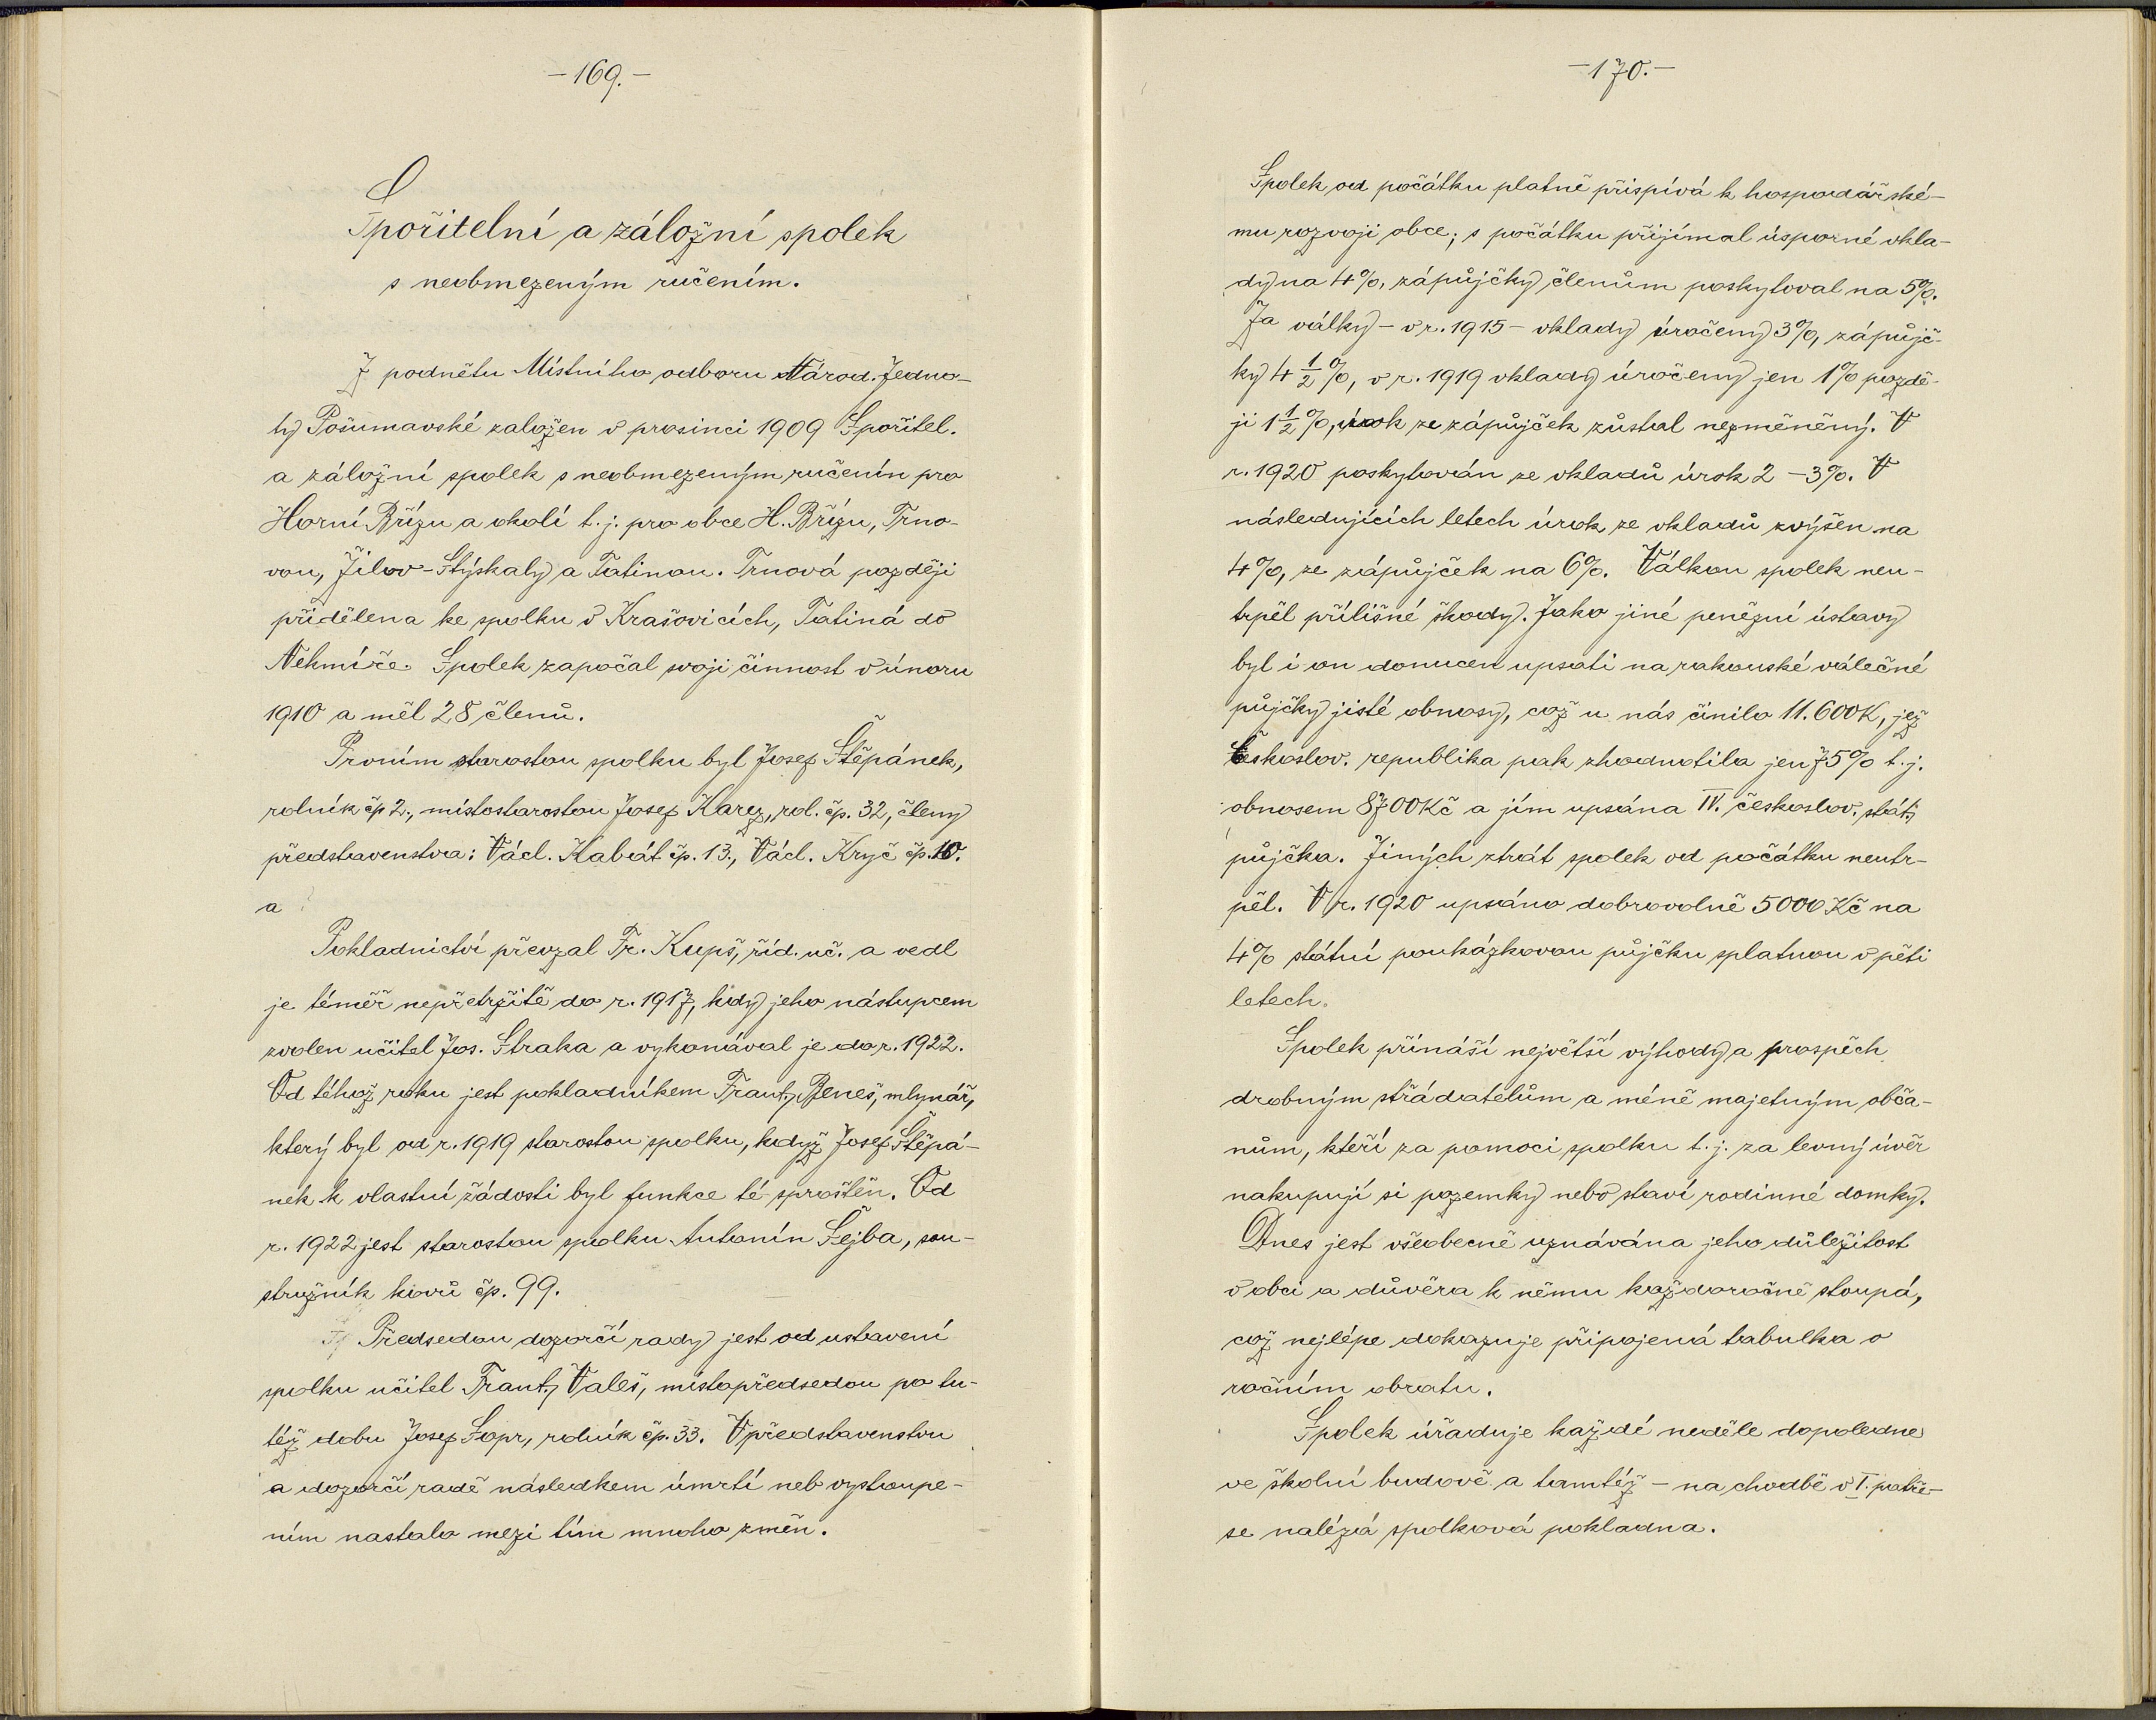 -169.-
Spořitelní a záložní spolek
s neobmezeným ručením.
Z podnětu Místního odboru Národ. Jedno-
ty Pošumavské založen v prosinci 1909 Spořitel.
a záložní spolek s neobmezeným ručenín pro
Horní Břízu a okolí t. j. pro obce H. Břízu, Trno-
vou, Žilov-Stýskaly a Tatinou. Trnová později
přidělena ke spolku v Krašovicích, Tatiná do
Nekmíře. Spolek započal svoji činnost v únoru
1910 a měl 28 členů.
Prvním starostou spolku byl Josef Štěpánek,
rolník čp 2., místostarostou Josef Karez, rol. čp. 32, členy
představenstva: Václ. Kabát čp. 13., Václ. Kryč čp. 10.
a
Pokladnictví převzal Fr. Kupš, říd. uč. a vedl
je téměř nepřetržitě do r. 1917, kdy jeho nástupcem
zvolen učitel Jos. Straka a vykonával je do r. 1922.
Od téhož roku jest pokladníkem Frant. Beneš, mlynář,
který byl od r. 1919 starostou spolku, když Josef Štěpá-
nek k vlastní žádosti byl funkce té sproštěn. Od
r. 1922 jest starostou spolku Antonín Šejba, sou-
stružník kovů čp. 99.
Předsedou dozorčí rady jest od ustavení
spolku učitel Frant. Valeš, místopředsedou po tu-
též dobu Josef Sopr, rolník čp. 33. V představenstvu
a dozorčí radě následkem úmrtí neb vystoupe-
ním nastalo mezi tím mnoho změn.
-170.-
Spolek od počátku platně přispívá k hospodářské-
mu rozvoji obce; s počátku přijímal úsporné vkla-
dy na 4%, zápůjčky členům poskytoval na 5%.
Za války - v r. 1915 - vklady úročeny 3%, zápůjč-
ky 4 1/2 %, v r. 1919 vklady úročeny jen 1% pozdě-
ji 1 1/2 %, úrok ze zápůjček zůstal nezměněný. V
r. 1920 poskytován ze vkladů úrok 2 - 3%. V
následujících letech úrok ze vkladů zvýšen na
4%, ze zápůjček na 6%. Válkou spolek neu-
trpěl přílišné škody. Jako jiné peněžní ústavy
byl i on donucen upsati na rakouské válečné
půjčky jisté obnosy, což u nás činilo 11.600K, jež
Českoslov. republika pak zhodnotila jen 75% t. j.
obnosem 8700Kč a jím upsána IV. českoslov. stát.
půjčka. Jiných ztrát spolek od počátku neutr-
pěl. V r. 1920 upsáno dobrovolně 5000 Kč na
4% státní poukázkovou půjčku splatnou v pěti
letech.
Spolek přináší největší výhody a prospěch
drobným střádatelům a méně majetným obča-
nům, kteří za pomoci spolku t. j. za levný úvěr
nakupují si pozemky nebo staví rodinné domky.
Dnes jest všeobecně uznávána jeho důležitost
v obci a důvěra k němu každoročně stoupá,
což nejlépe dokazuje připojená tabulka o
ročním obratu.
Spolek úřaduje každé neděle dopoledne
ve školní budově a tamtéž - na chodbě v I. patře -
se nalézá spolková pokladna.